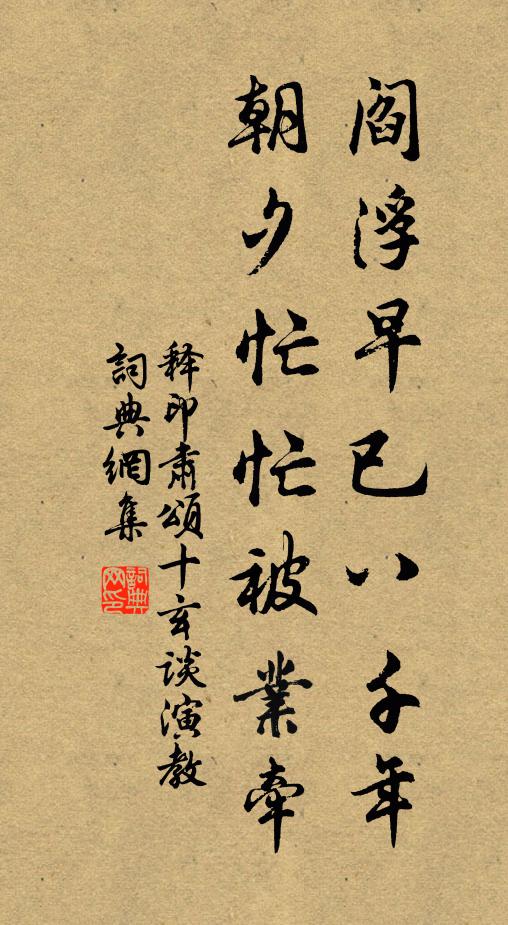 閻浮早已八千年
朝夕忙忙被業牽
释印肅頌十玄谈演教
詞典網集
詞典网印